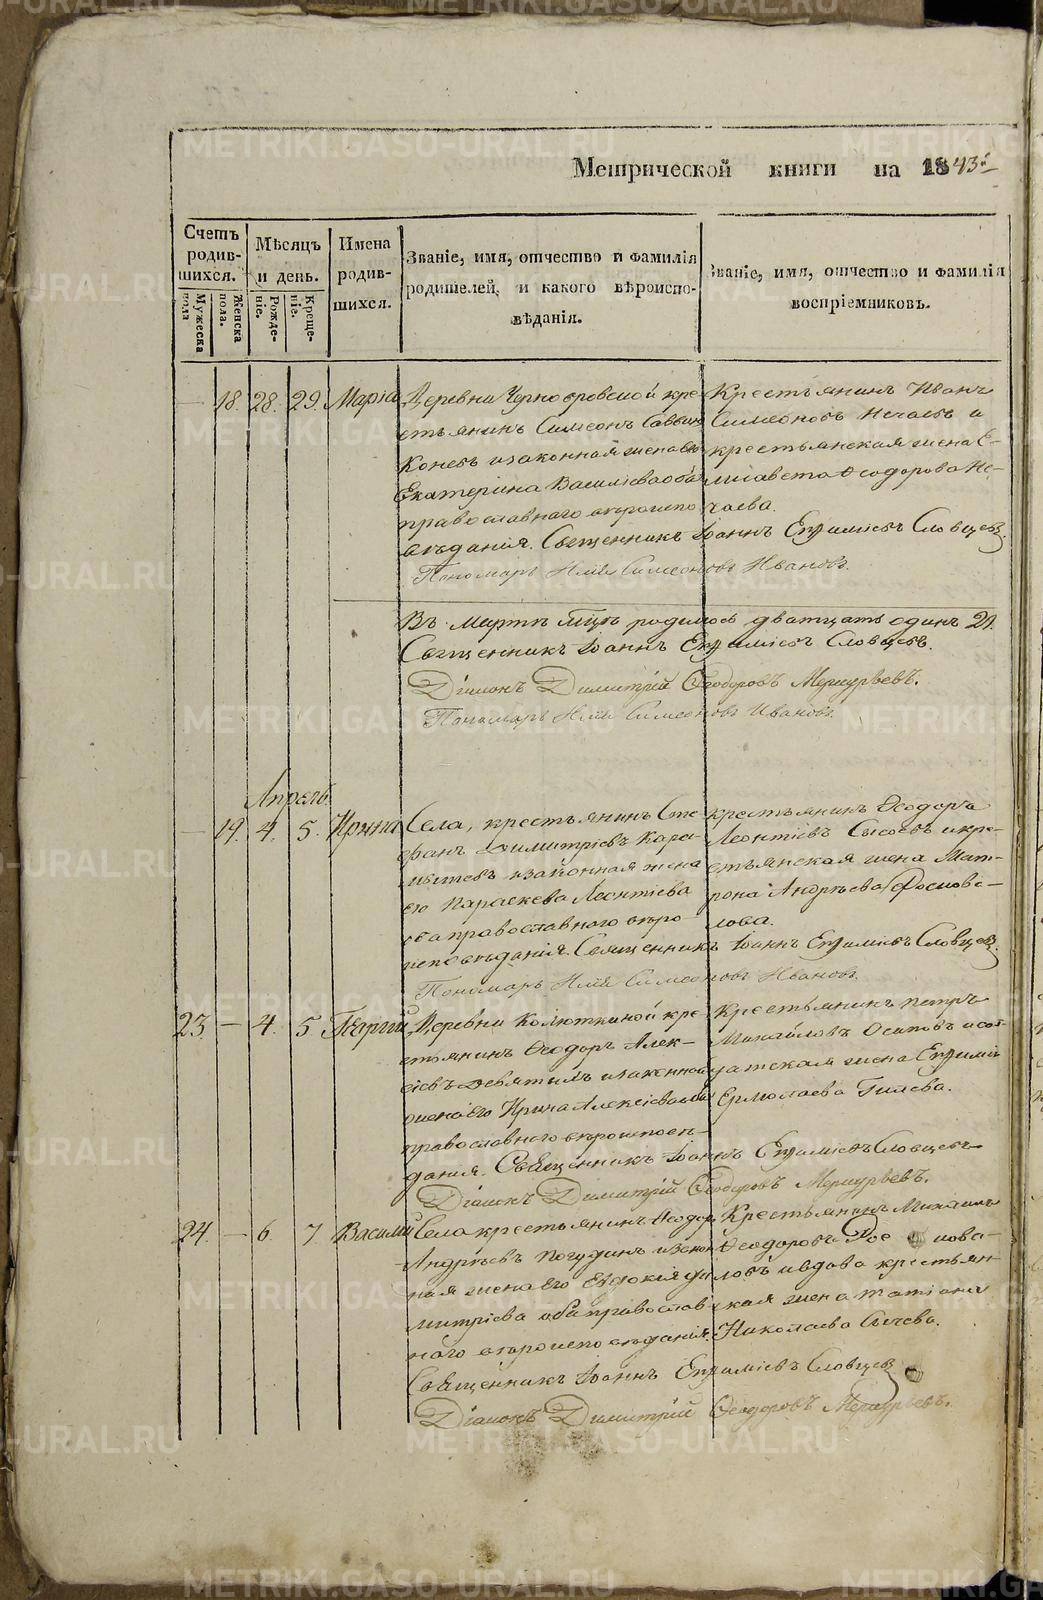 Метрической книги на 1843й
Счетъ родив-шихся.
Мужеска пола
Женска пола.
Мѣсяцъ и день.
Рожде-ніе.
Креще-ніе.
Имена родив-шихся.
Званіе, имя, отчество и фамилія
родителей, и какого вѣроиспо-
вѣданія.
Званіе, имя, отчество и фамилія
воспріемниковъ.
— 18. 28. 29. Марія
Деревни кре-
стьянинъ Симеонъ Саввинъ
Коневъ и законная жена его
Екатерина Василіева оба
православнаго вѣроиспо
вѣданія. Священникъ Іоаннъ Евѳиміевъ Словцевъ.
Пономарь Илія Симеоновъ Ивановъ.
Крестьянинъ Иванъ
Симеоновъ Нечаевъ и
крестьянская жена Е-
лисавета Ѳеодорова Не-
чаева.
Въ Мартѣ мцѣ родилось дватцать одинъ 21.
Священникъ Іоаннъ Евѳиміевъ Словцевъ.
Діаконъ Димитрій Ѳеодоровъ Меркурьевъ.
Пономарь Илія Симеоновъ Ивановъ.
Апрель.
— 19. 4. 5. Ирина
Села, крестьянинъ Сте
фанъ Димитріевъ Кара-
мышевъ и законная жена
его Параскева Леонтіева
оба православнаго вѣро
исповѣданія. Священникъ Іоаннъ Евѳиміевъ Словцевъ.
Пономарь Илія Симеоновъ Ивановъ.
крестьянинъ Ѳеодоръ
Леонтіевъ Сысоевъ и кре-
стьянская жена Мат-
рона Андреева
лова.
23. — 4. 5 Георгій
Деревни Колюткиной кре
стьянинъ Ѳеодоръ Алек-
сіевъ Девятыхъ и законной
жена его Ирина Алексіева оба
православнаго вѣроисповѣ-
данія. Священникъ Іоаннъ Евѳиміевъ Словцевъ
Діаконъ Димитрій Ѳеодоровъ Меркурьевъ.
Крестьянинъ Петръ
Михайловъ Осиповъ и сол-
датская жена Евѳимія
Ермолаева Гилева.
24. — 6. 7 Василій
Села крестьянинъ Ѳеодоръ
Андреевъ Погудинъ и закон
ная жена его Евдокія Ди
митріева оба православ
наго вѣроисповѣданія.
Священникъ Іоаннъ Евѳиміевъ Словцевъ
Діаконъ Димитрій Ѳеодоровъ Меркурьевъ.
Крестьянинъ Михаилъ
Ѳеодоровъ
ловъ и вдова крестьян-
ская жена Татіана
Николаева Сычева.
METRIKI.GASO-URAL.RU